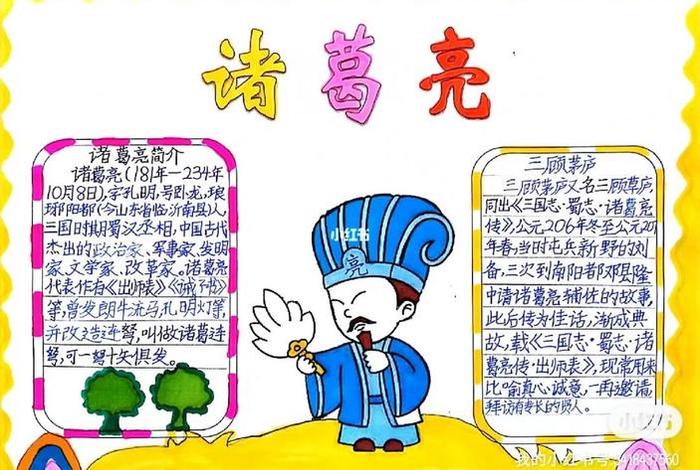 诸葛亮
诸葛亮简介
诸葛亮(181年—234年
10月8日),字孔明,号卧龙,琅
琊阳都(今山东省临沂南县)人,
三国时期蜀汉丞相,中国古代
杰出的政治家、军事家、发明
家、文学家、改革家。诸葛亮
代表作有《出师表》《诫子书》
等,曾发明木牛流马,孔明灯等,
并改造连弩,叫做诸葛连
弩,可一弩十矢俱发。
小红书
亮
三顾茅庐
三顾茅庐又名三顾草庐,
同出《三国志·蜀志·诸葛亮
传》,公元206年冬至公元207
年春,当时屯兵新野的刘
备,三次到南阳郡邓县隆
中请诸葛亮辅佐的故事,
此后传为佳话,渐成典
故,载《三国志·蜀志·诸
葛亮传·出师表》,现常用来
比喻真心诚意,一再邀请
拜访有专长的贤人。
小红书
我的小红书号: